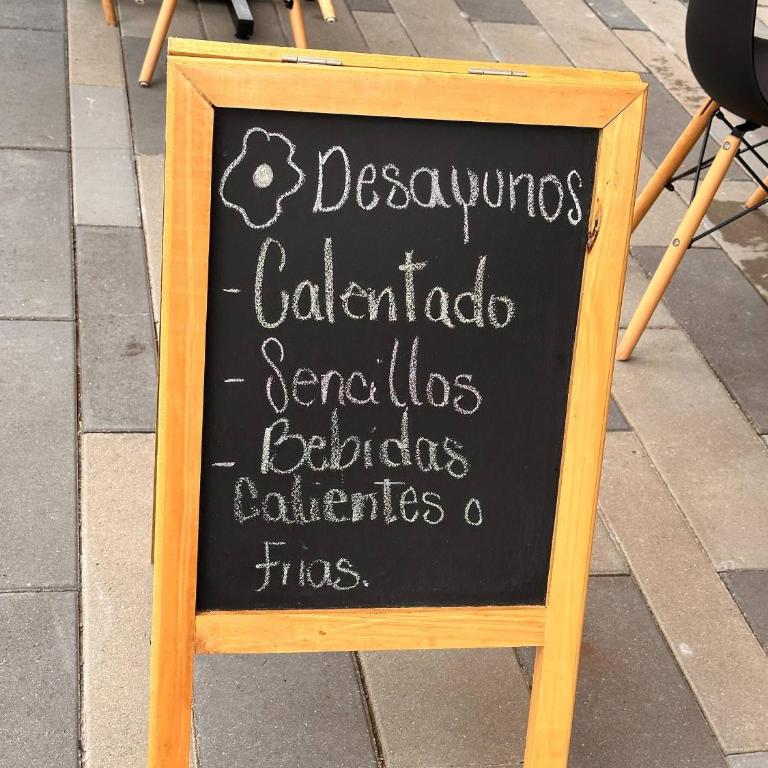 Desayunos
- Calentado
- Sencillos
- Bebidas
Calientes o
Frias.